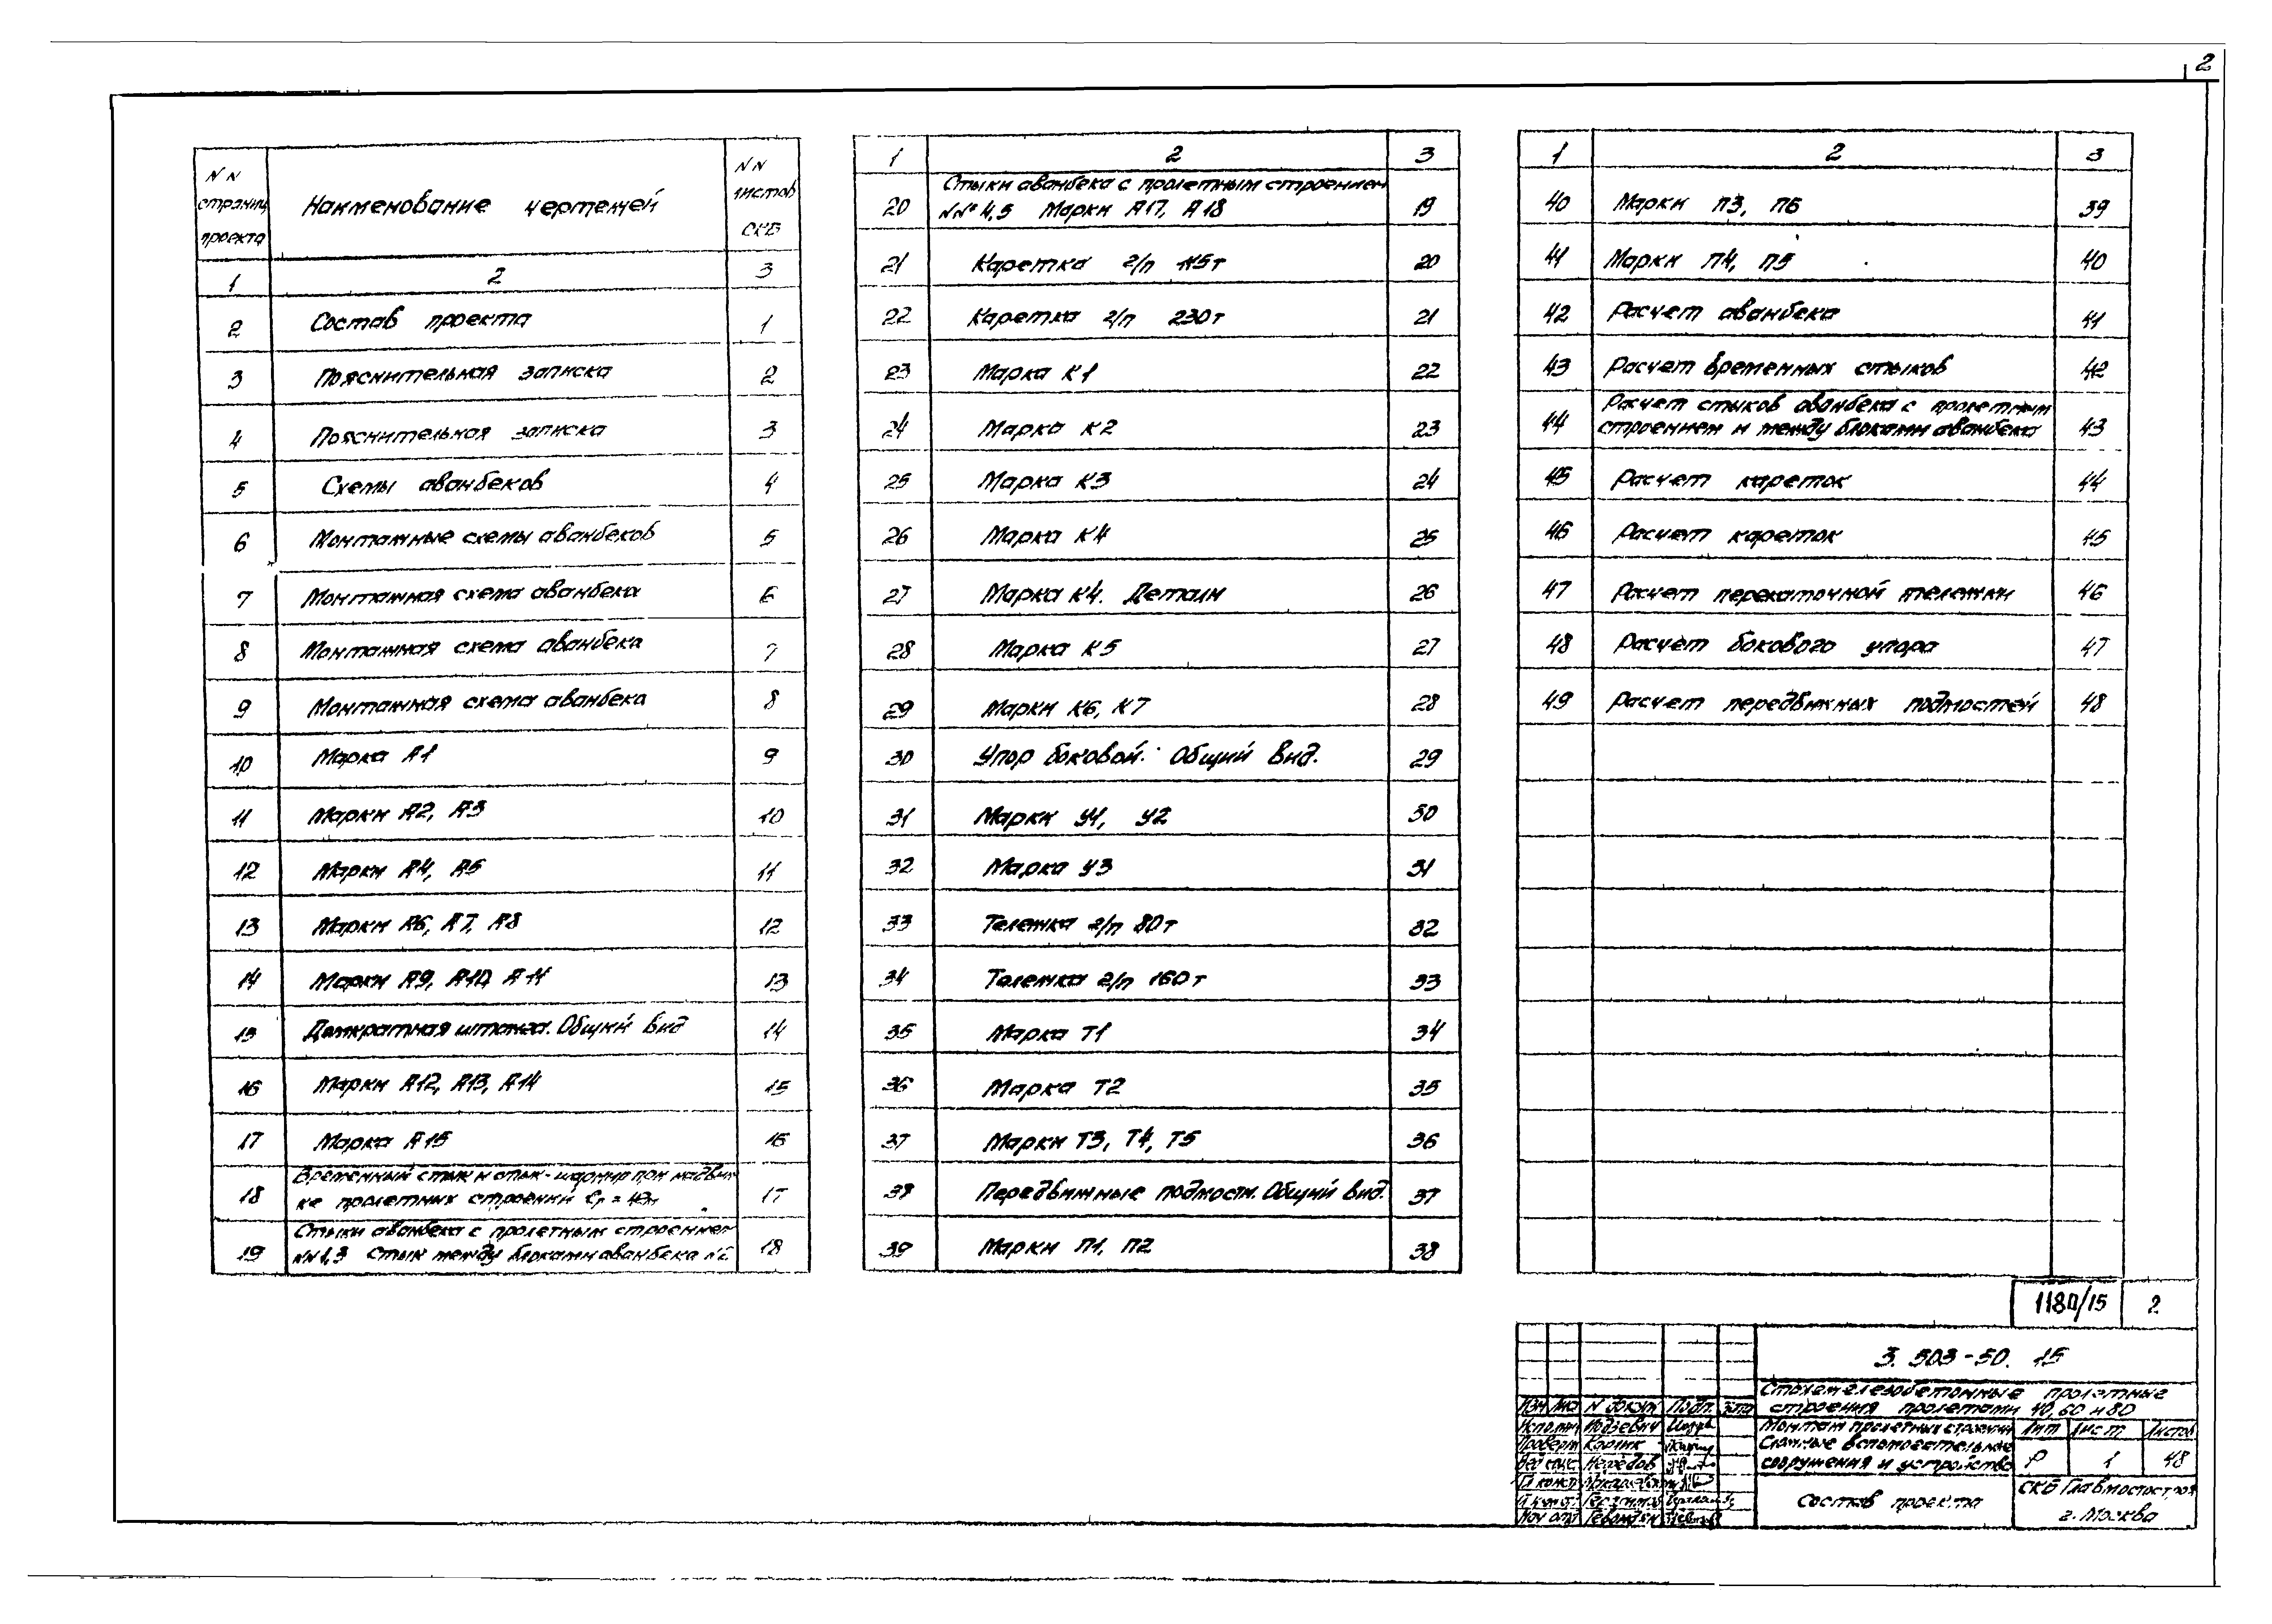 2
NN страниц проекта | Наименование чертежей | NN листов СКБ
1 | 2 | 3
2 | Состав проекта | 1
3 | Пояснительная записка | 2
4 | Пояснительная записка | 3
5 | Схемы аванбеков | 4
6 | Монтажные схемы аванбеков | 5
7 | Монтажная схема аванбека | 6
8 | Монтажная схема аванбека | 7
9 | Монтажная схема аванбека | 8
10 | Марка А1 | 9
11 | Марки А2, А3 | 10
12 | Марки А4, А5 | 11
13 | Марки А6, А7, А8 | 12
14 | Марки А9, А10, А11 | 13
15 | Домкратная штанга. Общий вид | 14
16 | Марки А12, А13, А14 | 15
17 | Марка А15 | 16
Временный стык и стык-шарнир при надвиж
18 | ке пролетных строений | 17
Стыки аванбека с пролетным строением
19 | NN 1,3 Стык между блоками аванбека N2 | 18
1 | 2 | 3
Стыки аванбека с пролетным строением
20 | NN° 4,5 Марки А17, А18 | 19
21 | Каретка г/п 115т | 20
22 | Каретка г/п 230т | 21
23 | Марка К1 | 22
24 | Марка К2 | 23
25 | Марка К3 | 24
26 | Марка К4 | 25
27 | Марка К4. Детали | 26
28 | Марка К5 | 27
29 | Марки К6, К7 | 28
30 | Упор боковой. Общий вид. | 29
31 | Марки У1, У2 | 30
32 | Марка У3 | 31
33 | Тележка г/п 80т | 32
34 | Тележка г/п 160т | 33
35 | Марка Т1 | 34
36 | Марка Т2 | 35
37 | Марки Т3, Т4, Т5 | 36
38 | Передвижные подмости. Общий вид. | 37
39 | Марки П1, П2 | 38
1 | 2 | 3
40 | Марки П3, П6 | 39
41 | Марки П4, П5 | 40
42 | Расчет аванбека | 41
43 | Расчет временных стыков | 42
Расчет стыков аванбека с пролетным
44 | строением и между блоками аванбека | 43
45 | Расчет кареток | 44
46 | Расчет кареток | 45
47 | Расчет перекаточной тележки | 46
48 | Расчет бокового упора | 47
49 | Расчет передвижных подмостей | 48
1180/15 | 2
3.503-50. 15
Сталежелезобетонные пролетные
строения пролетами 40, 60 и 80
Изм Лис N докум Подп Дата
Монтаж пролетных строений
Сложные вспомогательные
сооружения и устройства
Лит Лист Листов
Р 1 48
Исполн
Проверт Корник
Вед конс Нефедов
Гл конст
Нач отд
Состав проекта
СКБ Главмостостроя
г. Москва